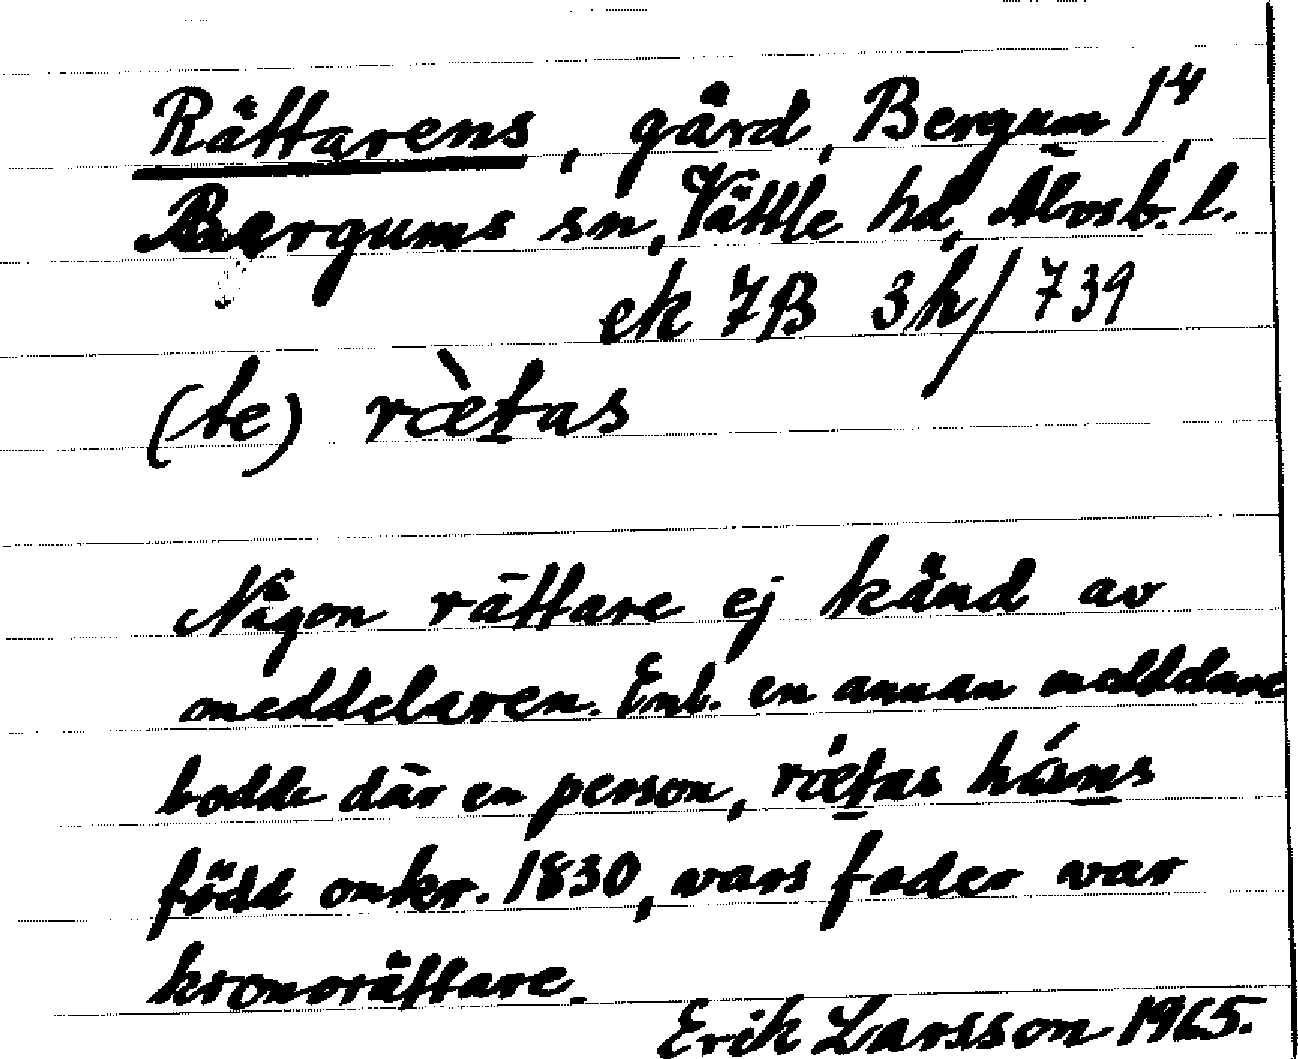 Rättarens, gård, Bergum 1⁴,
Bergums sn, Vättle hd, Älvsb. l.
ek 7B 3h/739
(te) ræ̀t̲as
Någon rättare ej känd av
meddelaren. Enl. en annan meddelare
bodde där en person, ræ̀t̲as háns
född omkr. 1830, vars fader var
kronorättare.
Erik Larsson 1965.